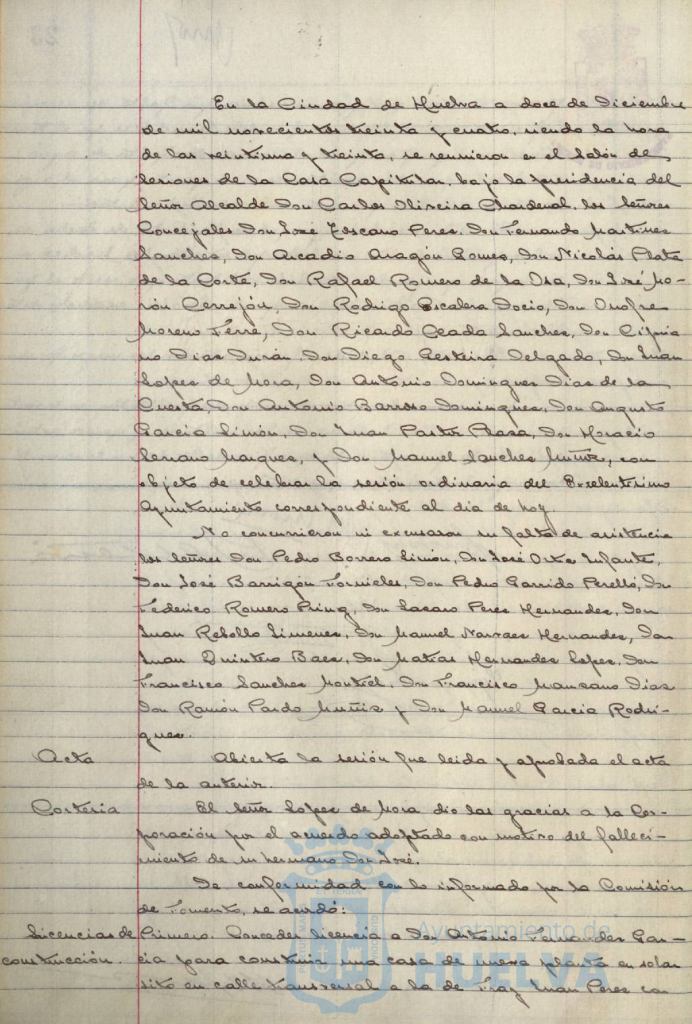 En la Ciudad de Huelva a doce de Diciembre
de mil novecientos treinta y cuatro, siendo la hora
de las veintiuna y treinta, se reunieron en el Salón de
Sesiones de la Casa Capitular, bajo la presidencia del
Señor Alcalde Don Carlos Oliveira Chardenal, los Señores
Concejales Don José Toscano Perez, Don Fernando Martinez
Sanchez, Don Arcadio Aragón Gomez, Don Nicolás Plata
de la Corte, Don Rafael Romero de la Osa, Don José Mo-
rón Cerrejón, Don Rodrigo Escalera Docio, Don Onofre
Moreno Ferré, Don Ricardo Ceada Sanchez, Don Cipria
no Dias Durán, Don Diego Gesteira Delgado, Don Juan
Lopez de Mora, Don Antonio Dominguez Dias de la
Cuesta, Don Antonio Barroso Dominguez, Don Augusto
Garcia Simón, Don Juan Pastor Plaza, Don Horacio
Serrano Marquez, y Don Manuel Sanchez Muñoz, con
objeto de celebrar la sesión ordinaria del Excelentisimo
Ayuntamiento correspondiente al dia de hoy.
No concurrieron ni excusaron su falta de asistencia
los Señores Don Pedro Borrero Limón, Don José Orta Infante,
Don José Barrigón Fornieles, Don Pedro Garrido Perelló, Don
Federico Romero Pring, Don Lazaro Perez Hernandez, Don
Juan Rebollo Jimenez, Don Manuel Narvaez Hernandez, Don
Juan Quintero Baez, Don Matias Hernandez Lopez, Don
Francisco Sanchez Montiel, Don Francisco Manzano Dias
Don Ramón Pardo Muñiz y Don Manuel Garcia Rodri-
guez.
Acta Abierta la sesión fue leida y aprobada el acta
de la anterior.
Cortesia El Señor Lopez de Mora dio las gracias a la Cor-
poración por el acuerdo adoptado con motivo del falleci-
miento de su hermano Don José.
De conformidad con lo informado por la Comisión
de Fomento, se acordó:
Licencias de Primero. Conceder licencia a Don Antonio Fernandez Gar-
construcción. cia para construir una casa de nueva planta en solar
sito en calle transversal a la de Fray Juan Perez con
Ayuntamiento de
HUELVA